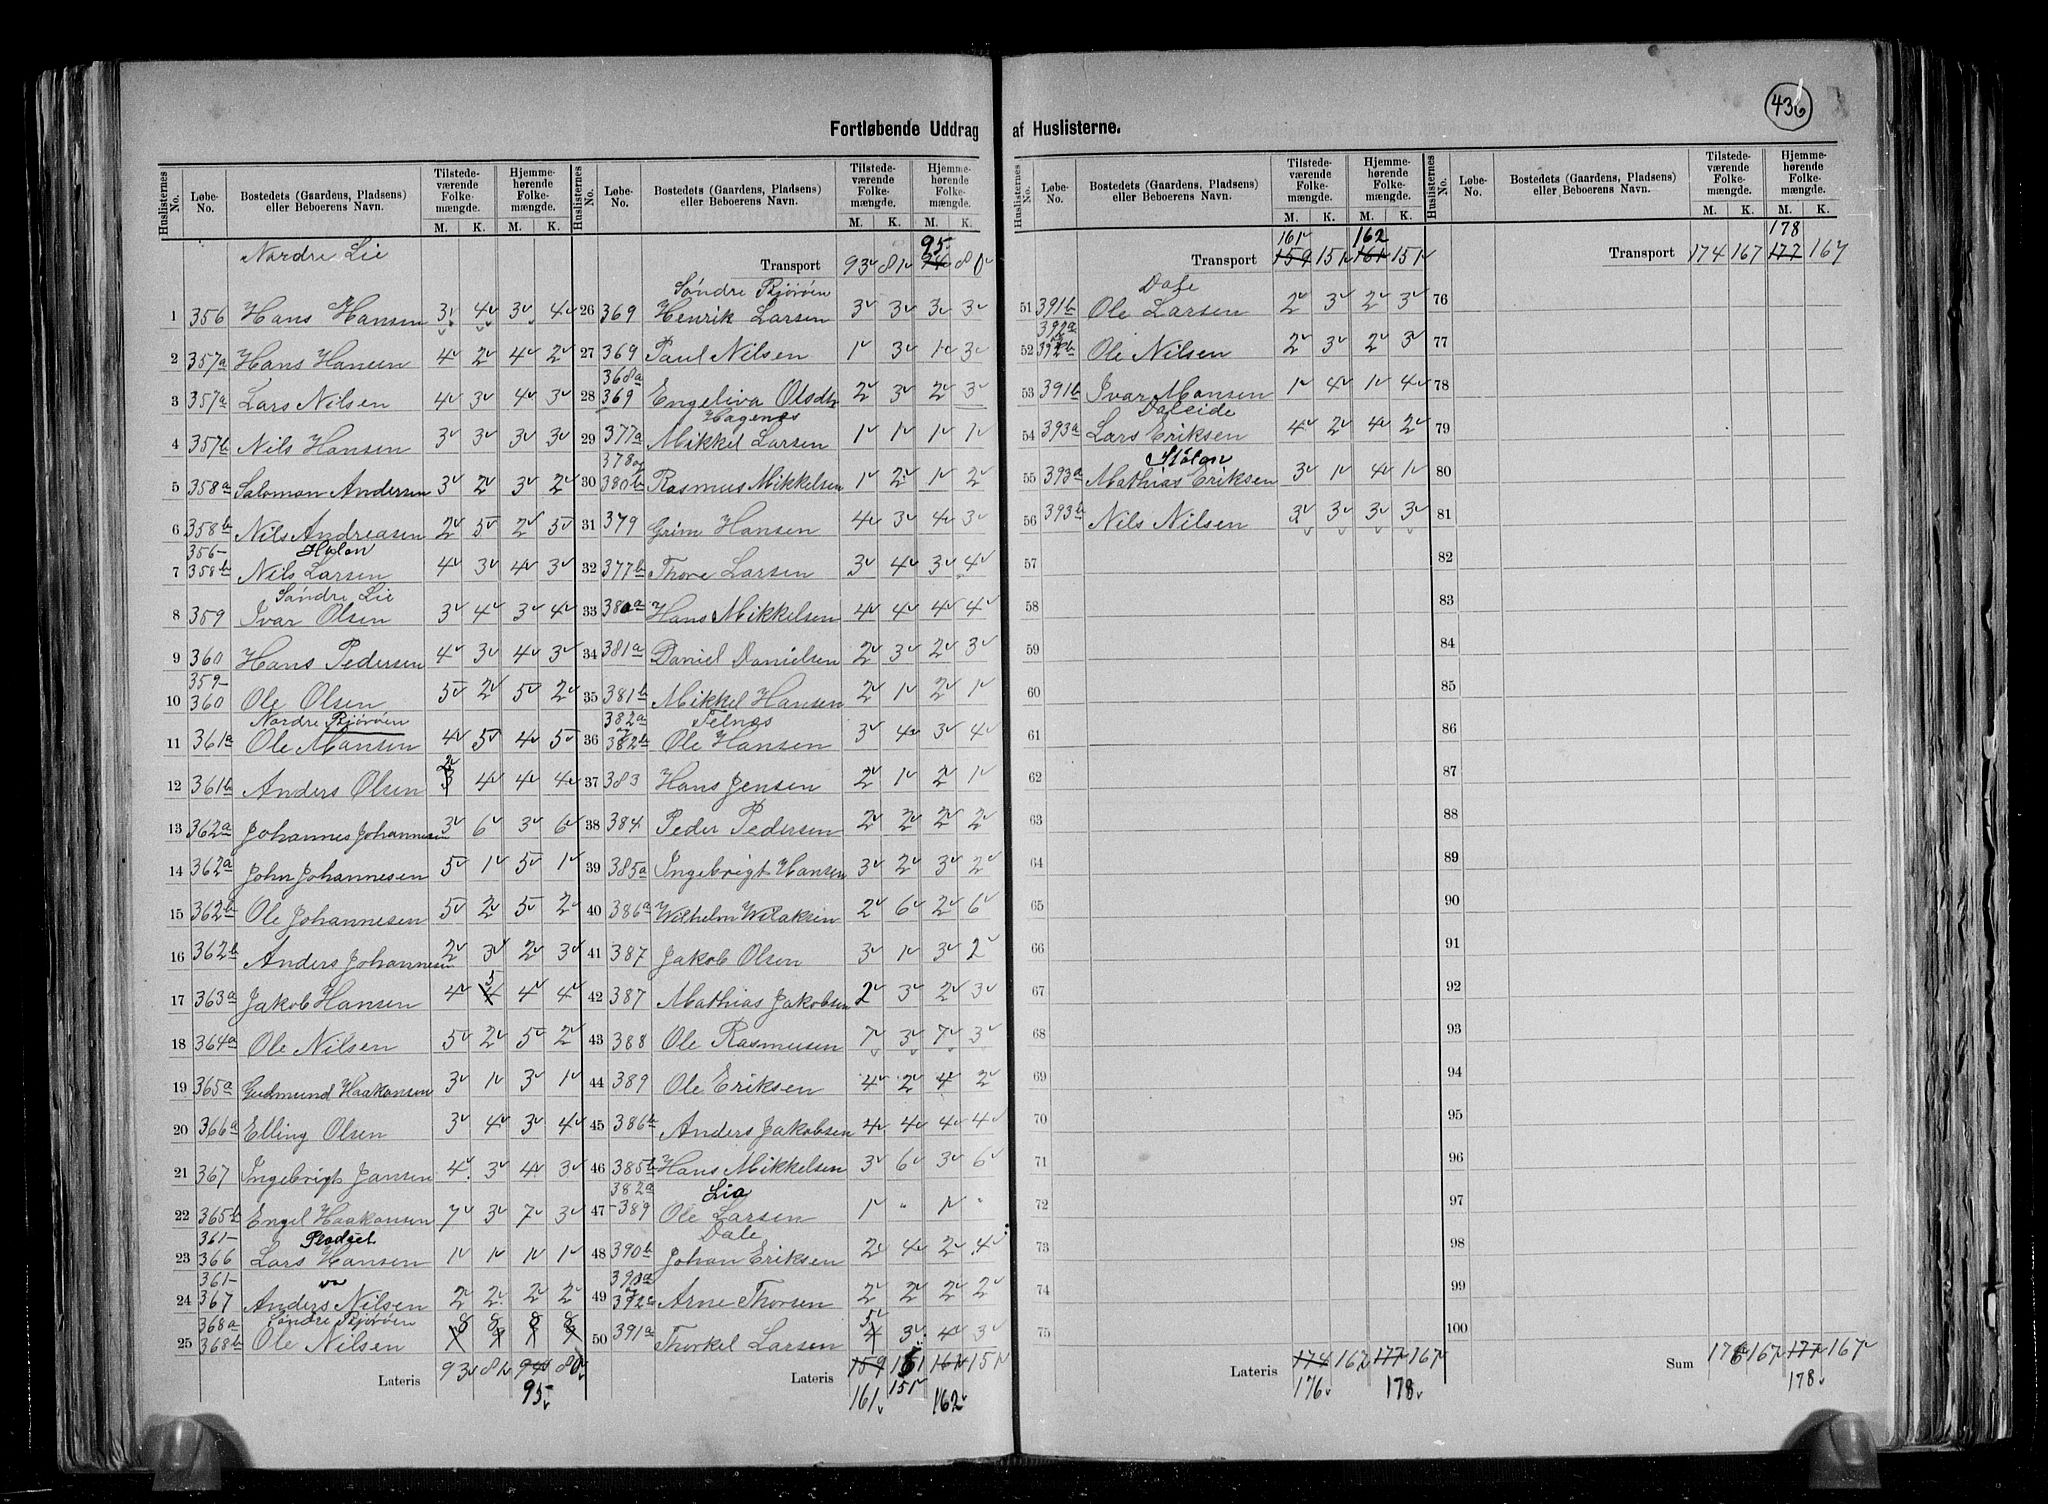 436
Fortløbende Uddrag af Huslisterne.
Huslisternes No. Løbe-No. Bostedets (Gaardens, Pladsens) eller Beboerens Navn. Tilstedeværende Folkemængde. M. K. Hjemmehørende Folkemængde. M. K.
Nordre Lie
1 356 Hans Hansen 3 4 3 4
2 357a Hans Hansen 4 2 4 2
3 357a Lars Nilsen 4 3 4 3
4 357b Nils Hansen 3 3 3 3
5 358a Salomon Andersen 3 2 3 2
6 358b Nils Andreasen 2 5 2 5
356-
7 358b Nils Larsen 4 3 4 3
Søndre Lie
8 359 Ivar Olsen 3 4 3 4
9 360 Hans Pedersen 4 3 4 3
359-
10 360 Ole Olsen 5 2 5 2
Nordre Bjørøen
11 361a Ole Monsen 4 5 4 5
2
12 361b Anders Olsen 3 4 4 4
13 362a Johannes Johannesen 3 6 3 6
14 362a John Johannesen 5 1 5 1
15 362b Ole Johannesen 5 2 5 2
16 362b Anders Johannesen 2 3 2 3
5
17 363a Jakob Hansen 4 4 4 4
18 364a Ole Nilsen 5 2 5 2
19 365a Gudmund Haakonsen 3 1 3 1
20 366a Elling Olsen 3 4 3 4
21 367 Ingebrigt Jansen 4 3 4 3
22 365b Engel Haakonsen 7 3 7 3
361- Pladset
23 366 Lars Hansen 1 1 1 1
361-
24 367 Anders Nilsen 2 2 2 2
368a Søndre Bjørøen 8 8 8 8
25 368b Ole Nilsen
Lateris 93 81 94 80
95
Huslisternes No. Løbe-No. Bostedets (Gaardens, Pladsens) eller Beboerens Navn. Tilstedeværende Folkemængde. M. K. Hjemmehørende Folkemængde. M. K.
95
Transport 93 81 94 80
Søndre Bjørøen
26 369 Henrik Larsen 3 3 3 3
27 369 Paul Nilsen 1 3 1 3
368a
28 369 Engeliva Olsdtr 2 3 2 3
Hagenes
29 377a Mikkel Larsen 1 1 1 1
378 og
30 380b Rasmus Mikkelsen 1 2 1 2
31 379 Grim Hansen 4 3 4 3
32 377b Thore Larsen 3 4 3 4
33 380a Hans Mikkelsen 4 4 4 4
34 381a Daniel Danielsen 2 3 2 3
35 381b Mikkel Hansen 2 1 2 1
382a Telnes
36 382b Ole Hansen 3 4 3 4
37 383 Hans Jensen 2 1 2 1
38 384 Peder Pedersen 2 2 2 2
39 385a Ingebrigt Hansen 3 2 3 2
40 386a Wilhelm Wilaksen 2 6 2 6
41 387 Jakob Olsen 3 1 3 2
42 387 Mathias Jakobsen 2 3 2 3
43 388 Ole Rasmusen 7 3 7 3
44 389 Ole Eriksen 4 2 4 2
45 386b Anders Jakobsen 4 4 4 4
46 385b Hans Mikkelsen 3 6 3 6
382a Lia
47 -389 Ole Larsen 1 " 1 "
Dale
48 390b Johan Eriksen 2 4 2 4
390a
49 392c Arne Thorsen 2 2 2 2
5
50 391a Thorkel Larsen 4 3 4 3
Lateris 159 151 161 151
161 151 162
Huslisternes No. Løbe-No. Bostedets (Gaardens, Pladsens) eller Beboerens Navn. Tilstedeværende Folkemængde. M. K. Hjemmehørende Folkemængde. M. K.
161 162
Transport 159 151 161 151
Dale
51 391b Ole Larsen 2 3 2 3
392a
52 392b Ole Nilsen 2 3 2 3
53 391b Ivar Monsen 1 4 1 4
Daleide
54 393a Lars Eriksen 4 2 4 2
Stølen
55 393a Mathias Eriksen 3 1 4 1
56 393b Nils Nilsen 3 3 3 3
57
58
59
60
61
62
63
64
65
66
67
68
69
70
71
72
73
74
75
Lateris 174 167 177 167
176 178
Huslisternes No. Løbe-No. Bostedets (Gaardens, Pladsens) eller Beboerens Navn. Tilstedeværende Folkemængde. M. K. Hjemmehørende Folkemængde. M. K.
178
Transport 174 167 177 167
76
77
78
79
80
81
82
83
84
85
86
87
88
89
90
91
92
93
94
95
96
97
98
99
100
Sum 176 167 177 167
178